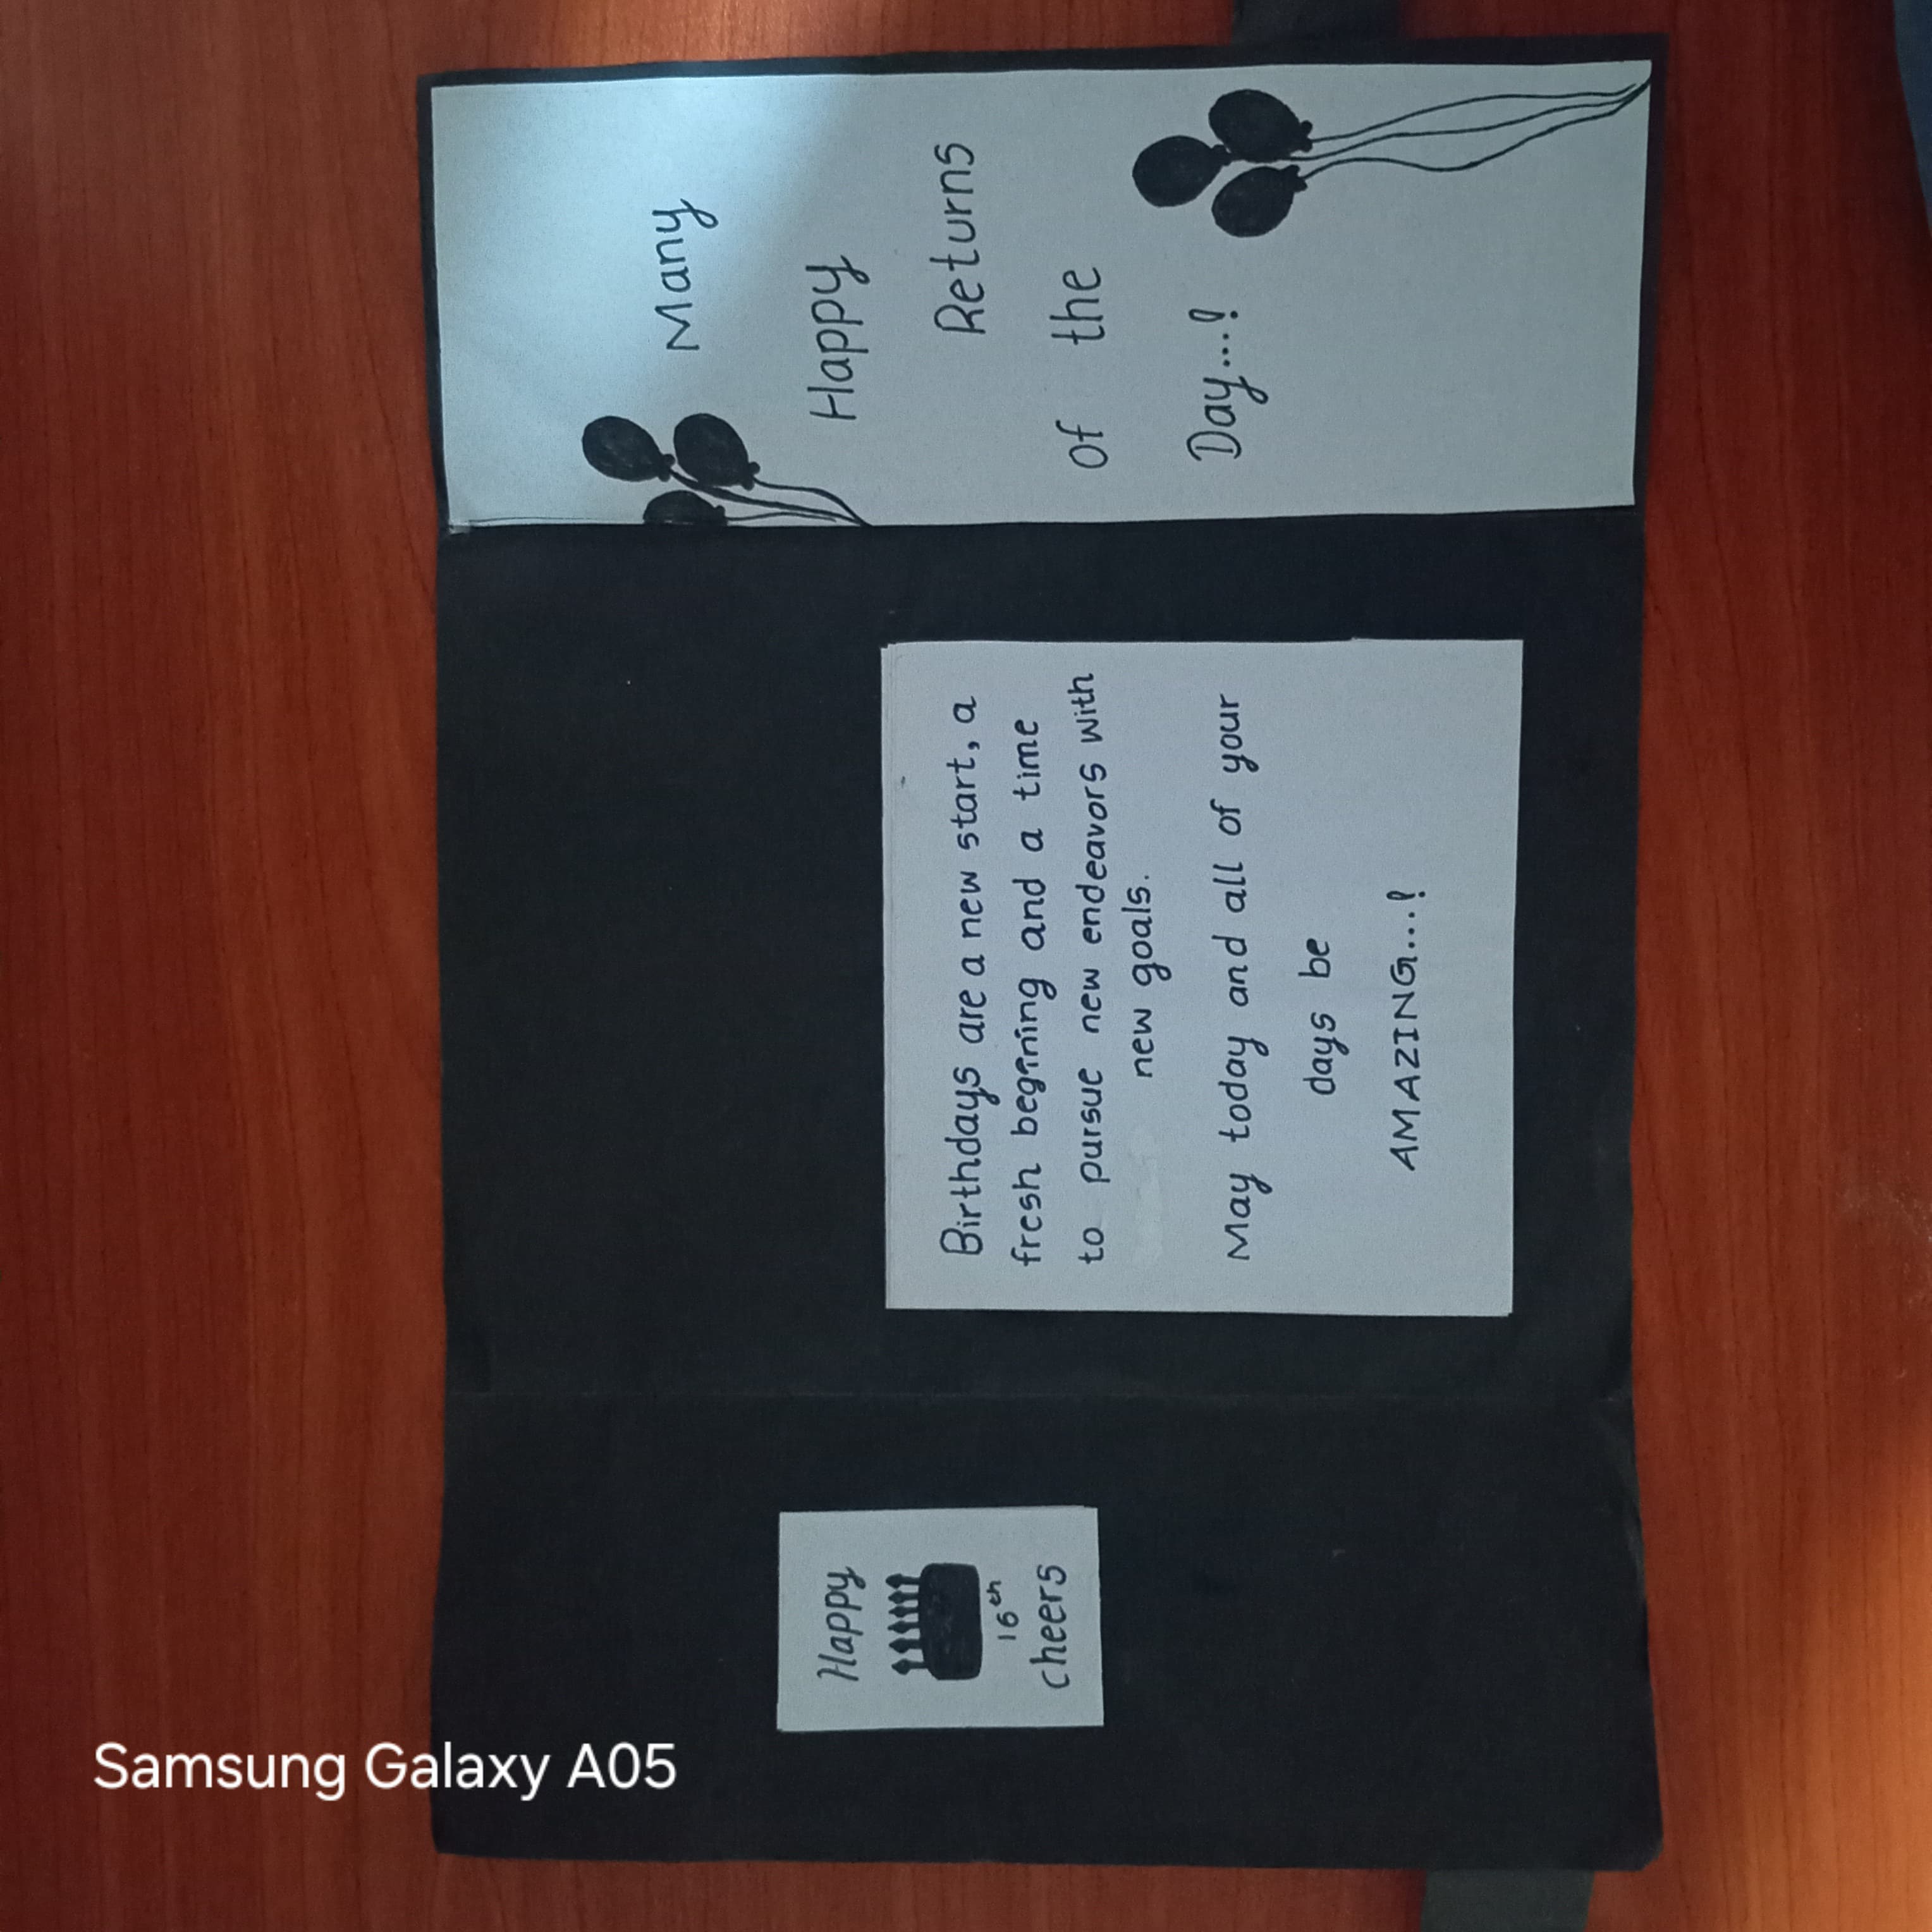 Happy
16th
cheers
Birthdays are a new start, a
fresh beginning and a time
to pursue new endeavors with
new goals.
May today and all of your
days be
AMAZING...!
Many
Happy
Returns
of the
Day...!
Samsung Galaxy A05